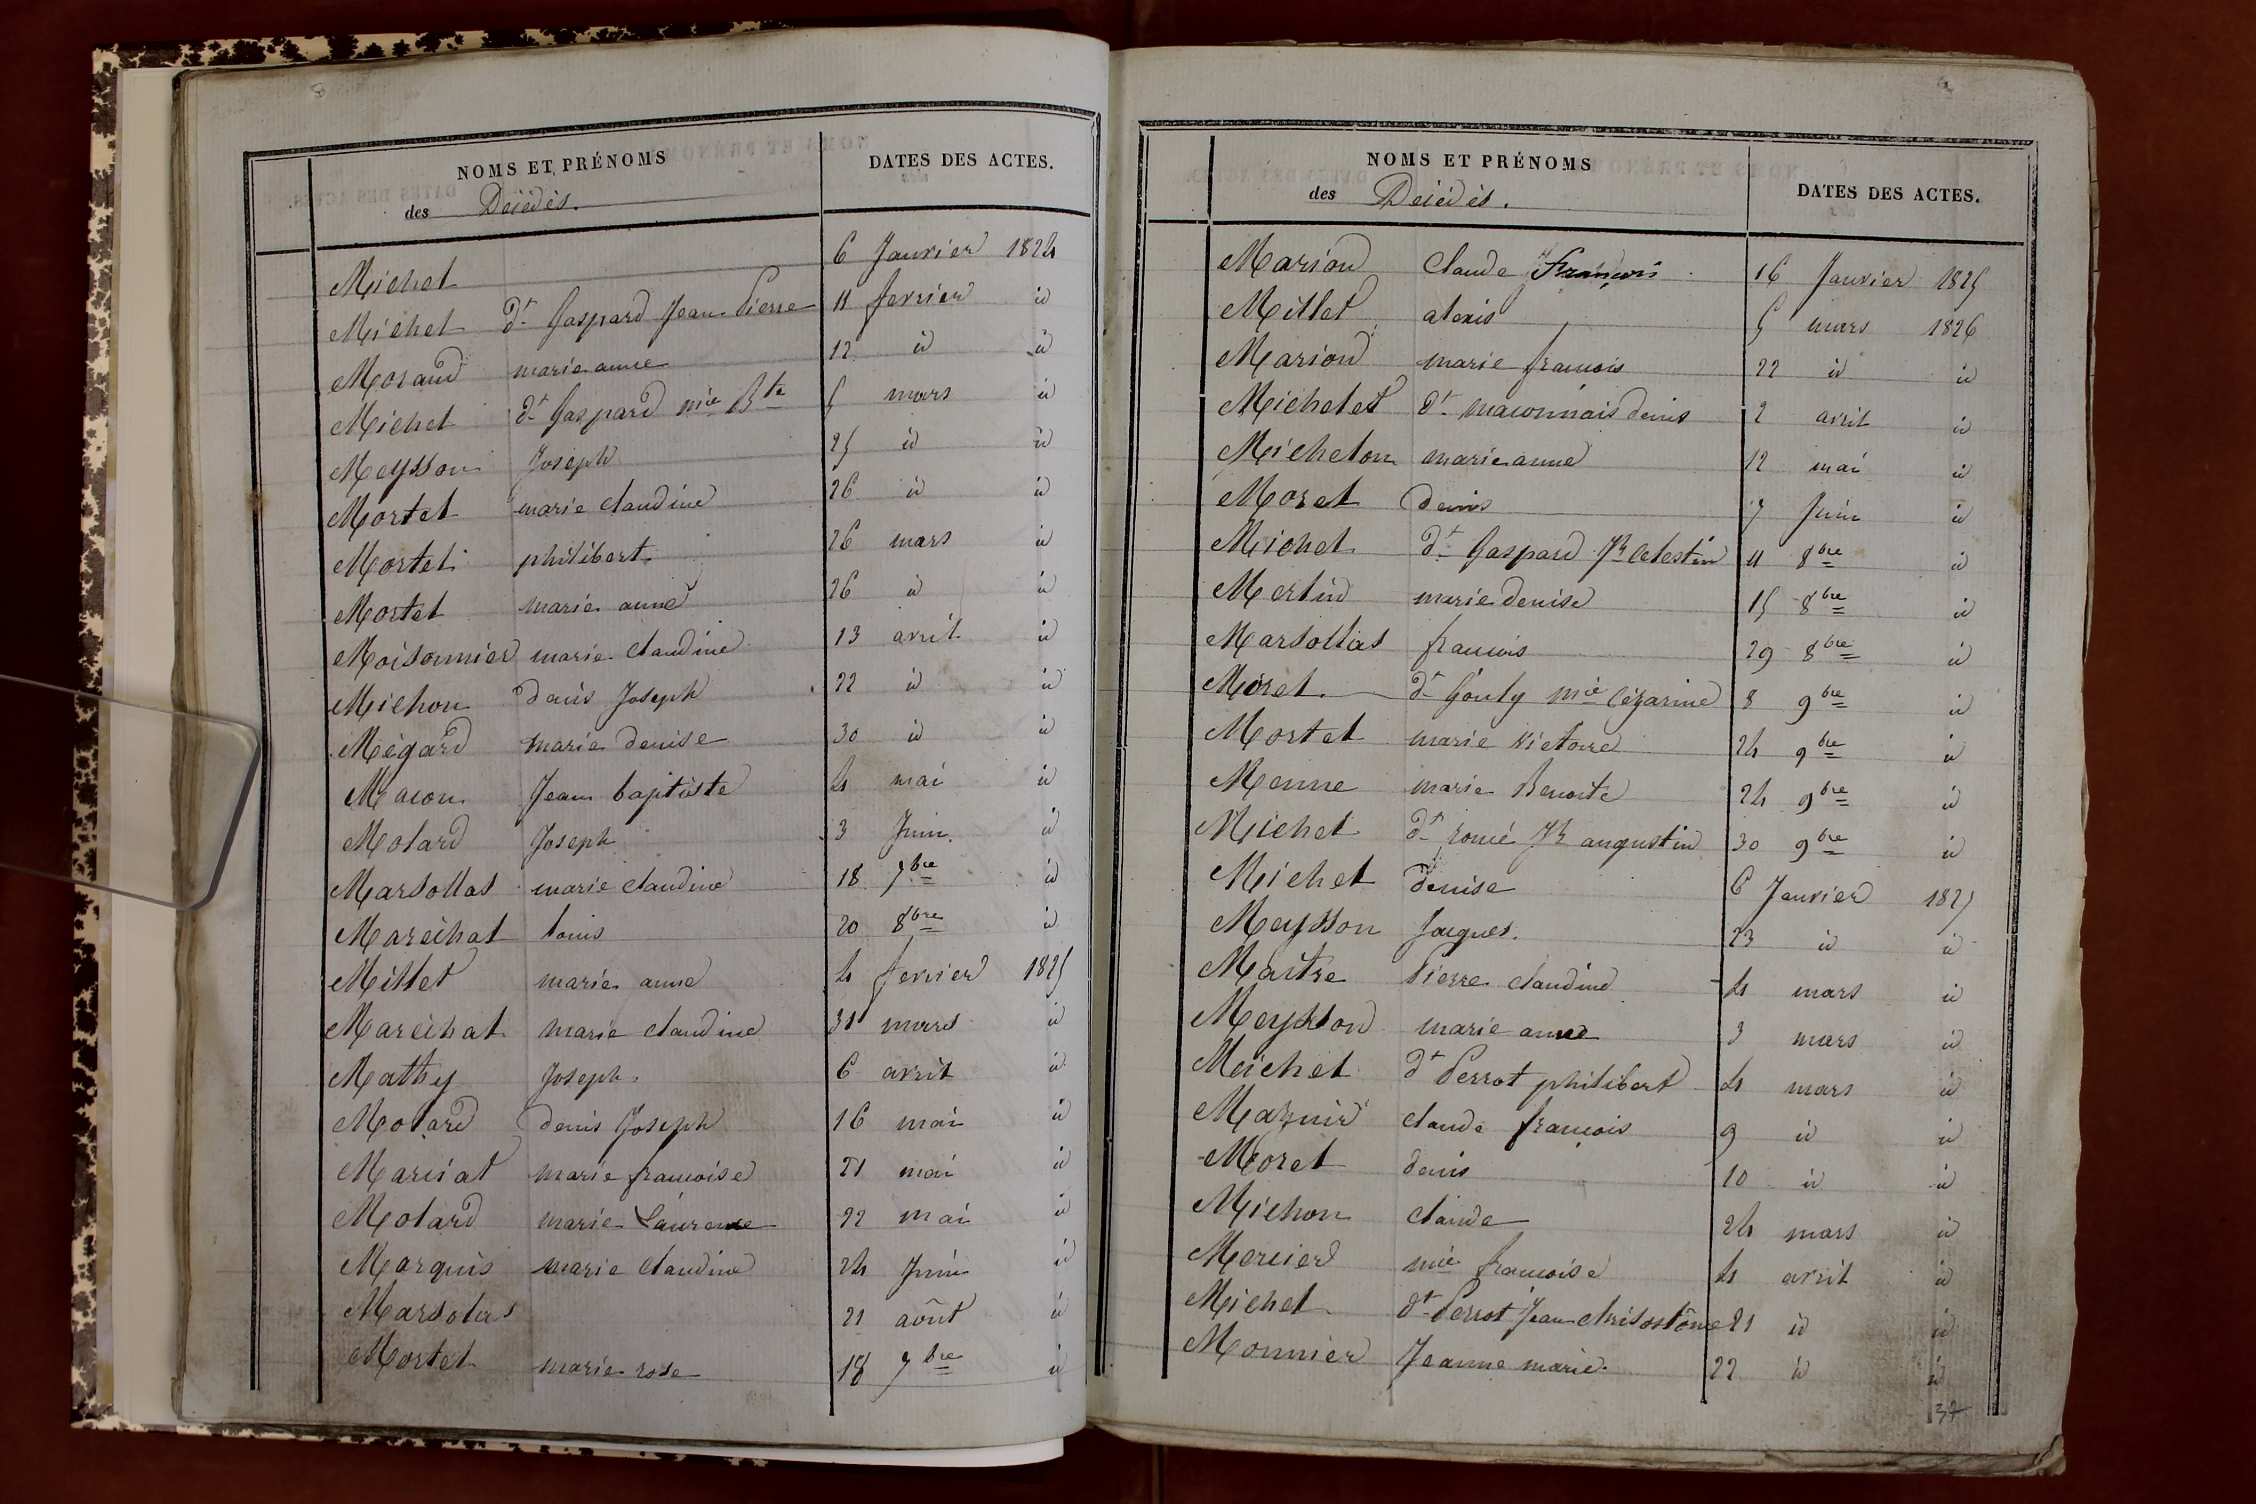 NOMS ET PRÉNOMS
des Décédés.
DATES DES ACTES.
Michel 6 Janvier 1824
Michel dt Gaspard Jean Pierre 11 fevrier id
Morand marie anne 12 id id
Michel dt Gaspard mie Bte 5 mars id
Meysson Joseph 25 id id
Mortel marie claudine 26 id id
Mortel philibert 26 mars id
Mortel marie anne 26 id id
Moisonnier marie claudine 13 avril id
Michon denis Joseph 22 id id
Mégard marie denise 30 id id
Macon Jean baptiste 4 mai id
Molard Joseph 3 Juin id
Marsollas marie claudine 18 7bre id
Maréchal louis 20 8bre id
Millet marie anne 4 fevrier 1825
Maréchal marie claudine 31 mars id
Mathy Joseph. 6 avril id
Molard denis Joseph 16 mai id
Marical marie francoise 21 mai id
Molard marie Laurence 22 mai id
Marquis marie claudine 24 Juin id
Marsolas 21 août id
Mortel marie rose 18 7bre id
NOMS ET PRÉNOMS
des Décédés.
DATES DES ACTES.
Marion claude François 16 Janvier 1825
Millet alexis 5 mars 1826
Marion marie francois 22 id id
Michelet dt maconnais denis 2 avril id
Micheton marie anne 12 mai id
Moret denis 7 Juin id
Michel dt Gaspard Jh Celestin 11 8bre id
Mertin marie denise 15 8bre id
Marsollas francois 29 8bre id
Moret dt Gouly mie Cézarine 8 9bre id
Mortel marie victoire 24 9bre id
Menne marie Benoite 24 9bre id
Michel dt romé Jh augustin 30 9bre id
Michel denise 6 Janvier 1827
Meysson Jacques. 23 id id
Maître Pierre claudine 4 mars id
Meysson marie anne 3 mars id
Michel dt Perrot philibert 4 mars id
Maznir claude francois 9 id id
Moret denis 10 id id
Michon claude 24 mars id
Mercier mie francoise 4 avril id
Michel dt Perrot Jean chrisostôme 21 id id
Monnier Jeanne marie. 22 id id
37